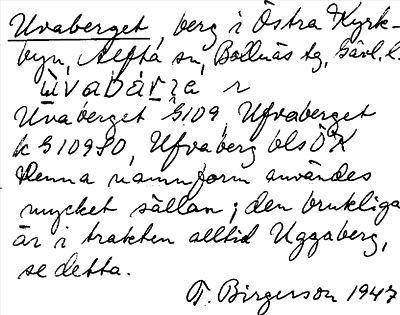 Uvaberget, berg i Östra Kyrk-
byn, Alfta sn, Bollnäs tg, Gävl. l.
Uvaberget G109, Ufvaberget
k G109SO, Ufvaberg bls ÖK
Denna namnform användes
mycket sällan; den brukliga
är i trakten alltid Uggaberg,
se detta.
T. Birgerson 1947